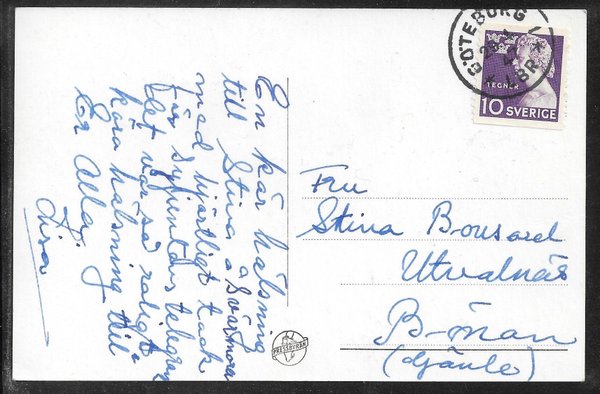 En kär hälsning
till Stina o Svärmora
med hjärtligt tack
för telegram
det var så roligt
kära hälsning till
Er Alla,
Lisa
GÖTEBORG 1
LBR
TEGNÉR
10 SVERIGE
Fru
Stina
Utvalnäs
PRESSBYRÅN